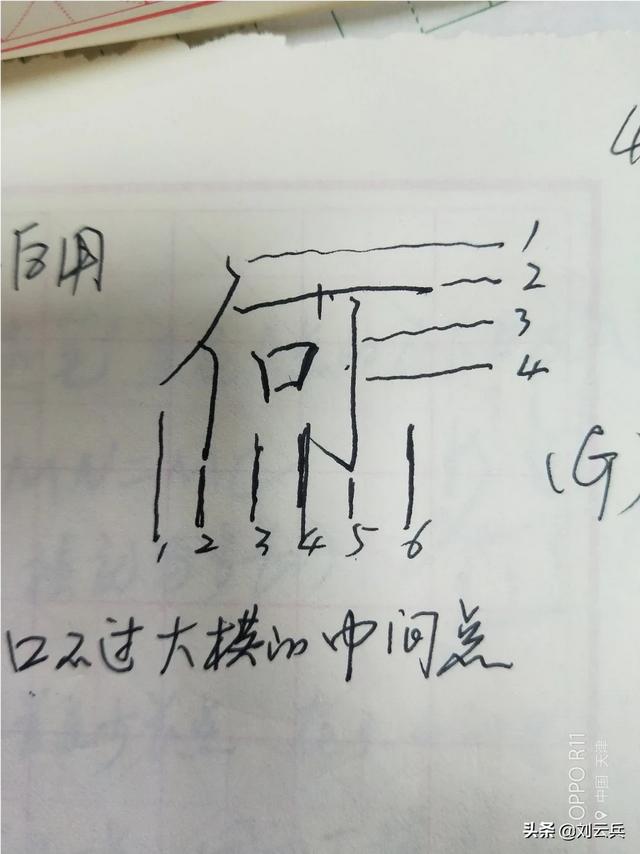 4
后用
何
1
2
3
4
1 2 3 4 5 6
(G)
口不过大横的中间点
OPPO R11
中国 天津
头条 @刘云兵